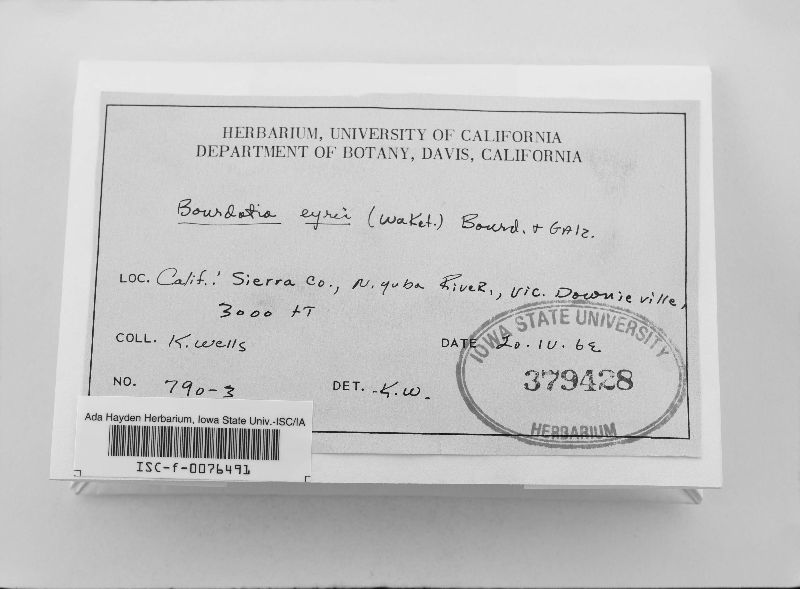 HERBARIUM, UNIVERSITY OF CALIFORNIA
DEPARTMENT OF BOTANY, DAVIS, CALIFORNIA
Bourdotia eyrei (Waket.) Bourd. + GAlz.
LOC. Calif.: Sierra Co., N. yuba River, Vic. Downieville,
3000 fT
COLL. K. Wells
DATE 20.IV.62
NO. 790-3
DET. K.W.
IOWA STATE UNIVERSITY
379428
HERBARIUM
Ada Hayden Herbarium, Iowa State Univ.-ISC/IA
ISC-f-0076491